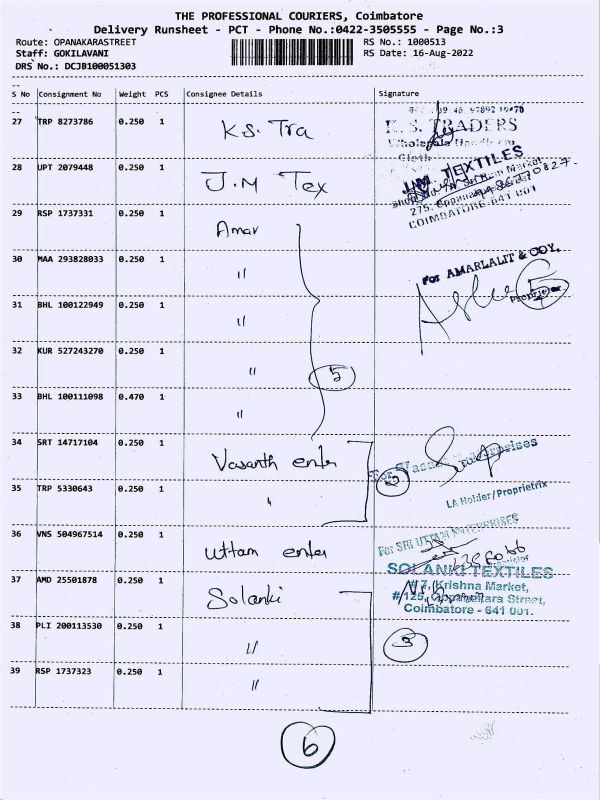 THE PROFESSIONAL COURIERS, Coimbatore
Delivery Runsheet - PCT - Phone No.:0422-3505555 - Page No.:3
Route: OPANAKARASTREET RS No.: 1000513
Staff: GOKILAVANI RS Date: 16-Aug-2022
DRS No.: DCJB100051303
S No Consignment No Weight PCS Consignee Details Signature
27 TRP 8273786 0.250 1 K.S. Tra
K. S. TRADERS
Wholesale
Cloth
28 UPT 2079448 0.250 1 J.M Tex
J.M. TEXTILES
COIMBATORE-641 001
29 RSP 1737331 0.250 1 Amar
30 MAA 293828033 0.250 1 "
For AMARLALIT & COY.
5
Proprietor
31 BHL 100122949 0.250 1 "
32 KUR 527243270 0.250 1 "
5
33 BHL 100111098 0.470 1 "
34 SRT 14717104 0.250 1 Vasanth enter
For Vasanth Enterprises
2
35 TRP 5330643 0.250 1 "
LA Holder/Proprietrix
36 VNS 504967514 0.250 1 Uttam enter
For SRI UTTAM ENTERPRISES
37 AMD 25501878 0.250 1 Solanki
SOLANKI TEXTILES
# 17, Krishna Market,
# 125, Oppanakara Street,
Coimbatore - 641 001.
38 PLI 200113530 0.250 1 "
3
39 RSP 1737323 0.250 1 "
6